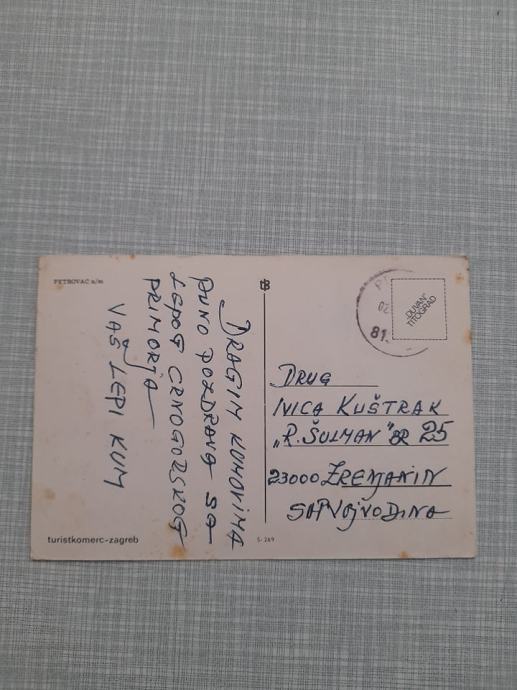 PETROVAC n/m
DRAGIM KUMOVIMA
PUNO POZDRAVA SA
LEPOG CRNOGORSKOG
PRIMORJA
VAŠ LEPI KUM
turistkomerc-zagreb
S-269
81
„DUVAN"
TITOGRAD
DRUG
IVICA KUŠTRAK
„R. ŠULMAN" BR 25
23000 ZRENJANIN
SAP VOJVODINA